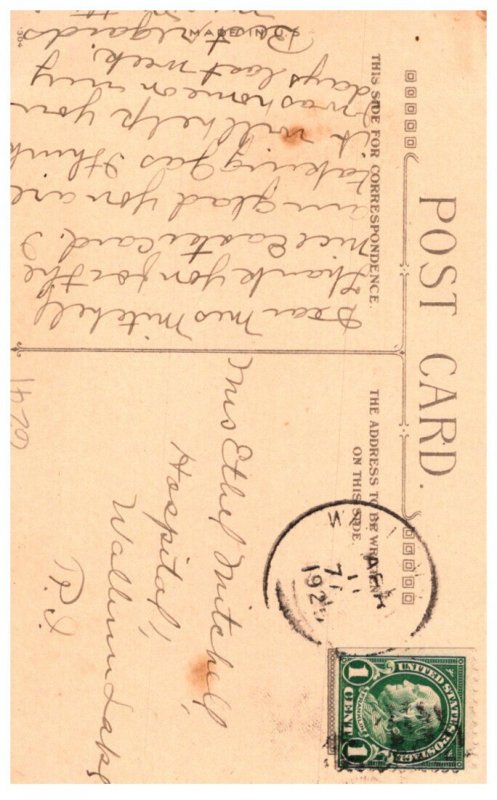 POST CARD.
THIS SIDE FOR CORRESPONDENCE.
THE ADDRESS TO BE WRITTEN
ON THIS SIDE.
Dear Miss Mitchell
thank you for the
nice Easter card. I
am glad you are
taking gas I think
it will help you
I was home on my
days last week.
Best regards
MADE IN U.S.
304
1479
Miss Ethel Mitchell,
Hospital,
Wallum Lake
R.I
APR
11
192
UNITED STATES POSTAGE
1 CENT 1